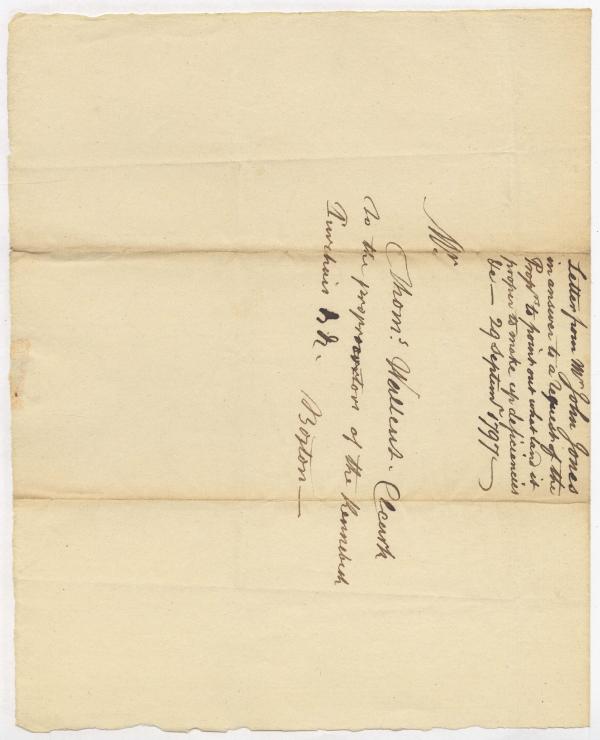 Letter from Mr John Jones
in answer to a request of the
Proprs to point out what land is
proper to make up deficiencies
&c— 29 Septemr 1797—
Mr
Thoms Wallcut. Cleark
to the proprietors of the Kennebeck
Purchais &c.
Boston—